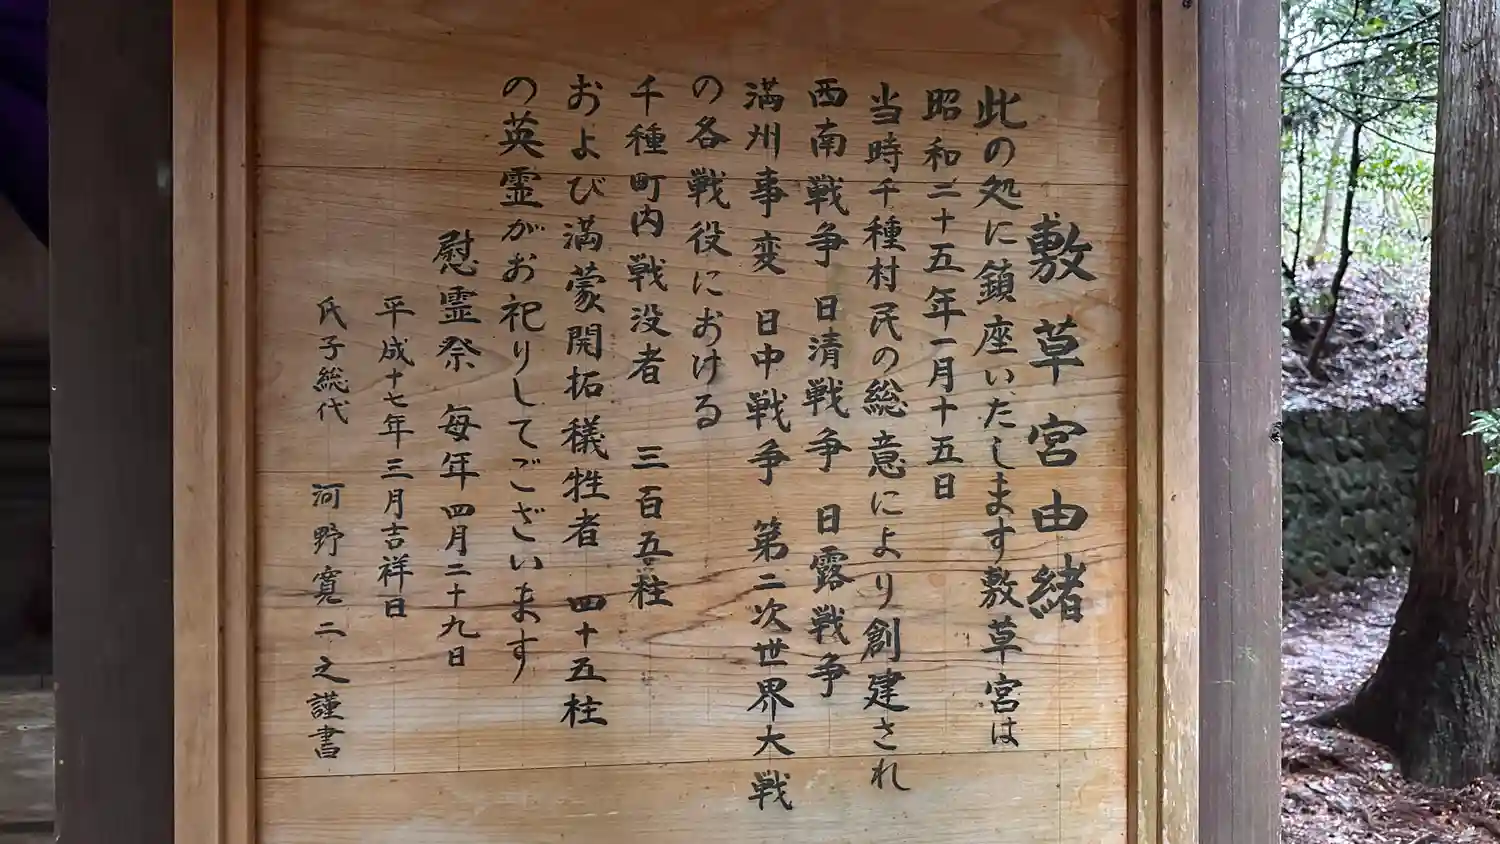 敷草宮由緒
此の処に鎮座いたします敷草宮は
昭和二十五年一月十五日
当時千種村民の総意により創建され
西南戦争 日清戦争 日露戦争
満州事変 日中戦争 第二次世界大戦
の各戦役における
千種町内戦没者 三百五柱
および満蒙開拓犠牲者 四十五柱
の英霊がお祀りしてございます
慰霊祭 毎年四月二十九日
平成十七年三月吉祥日
氏子総代 河野寛二之謹書